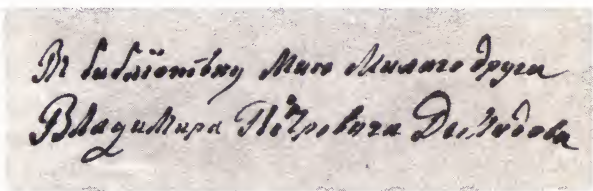 Въ библіотеку Мило Милаго друга
Владимира Петровича Демидова